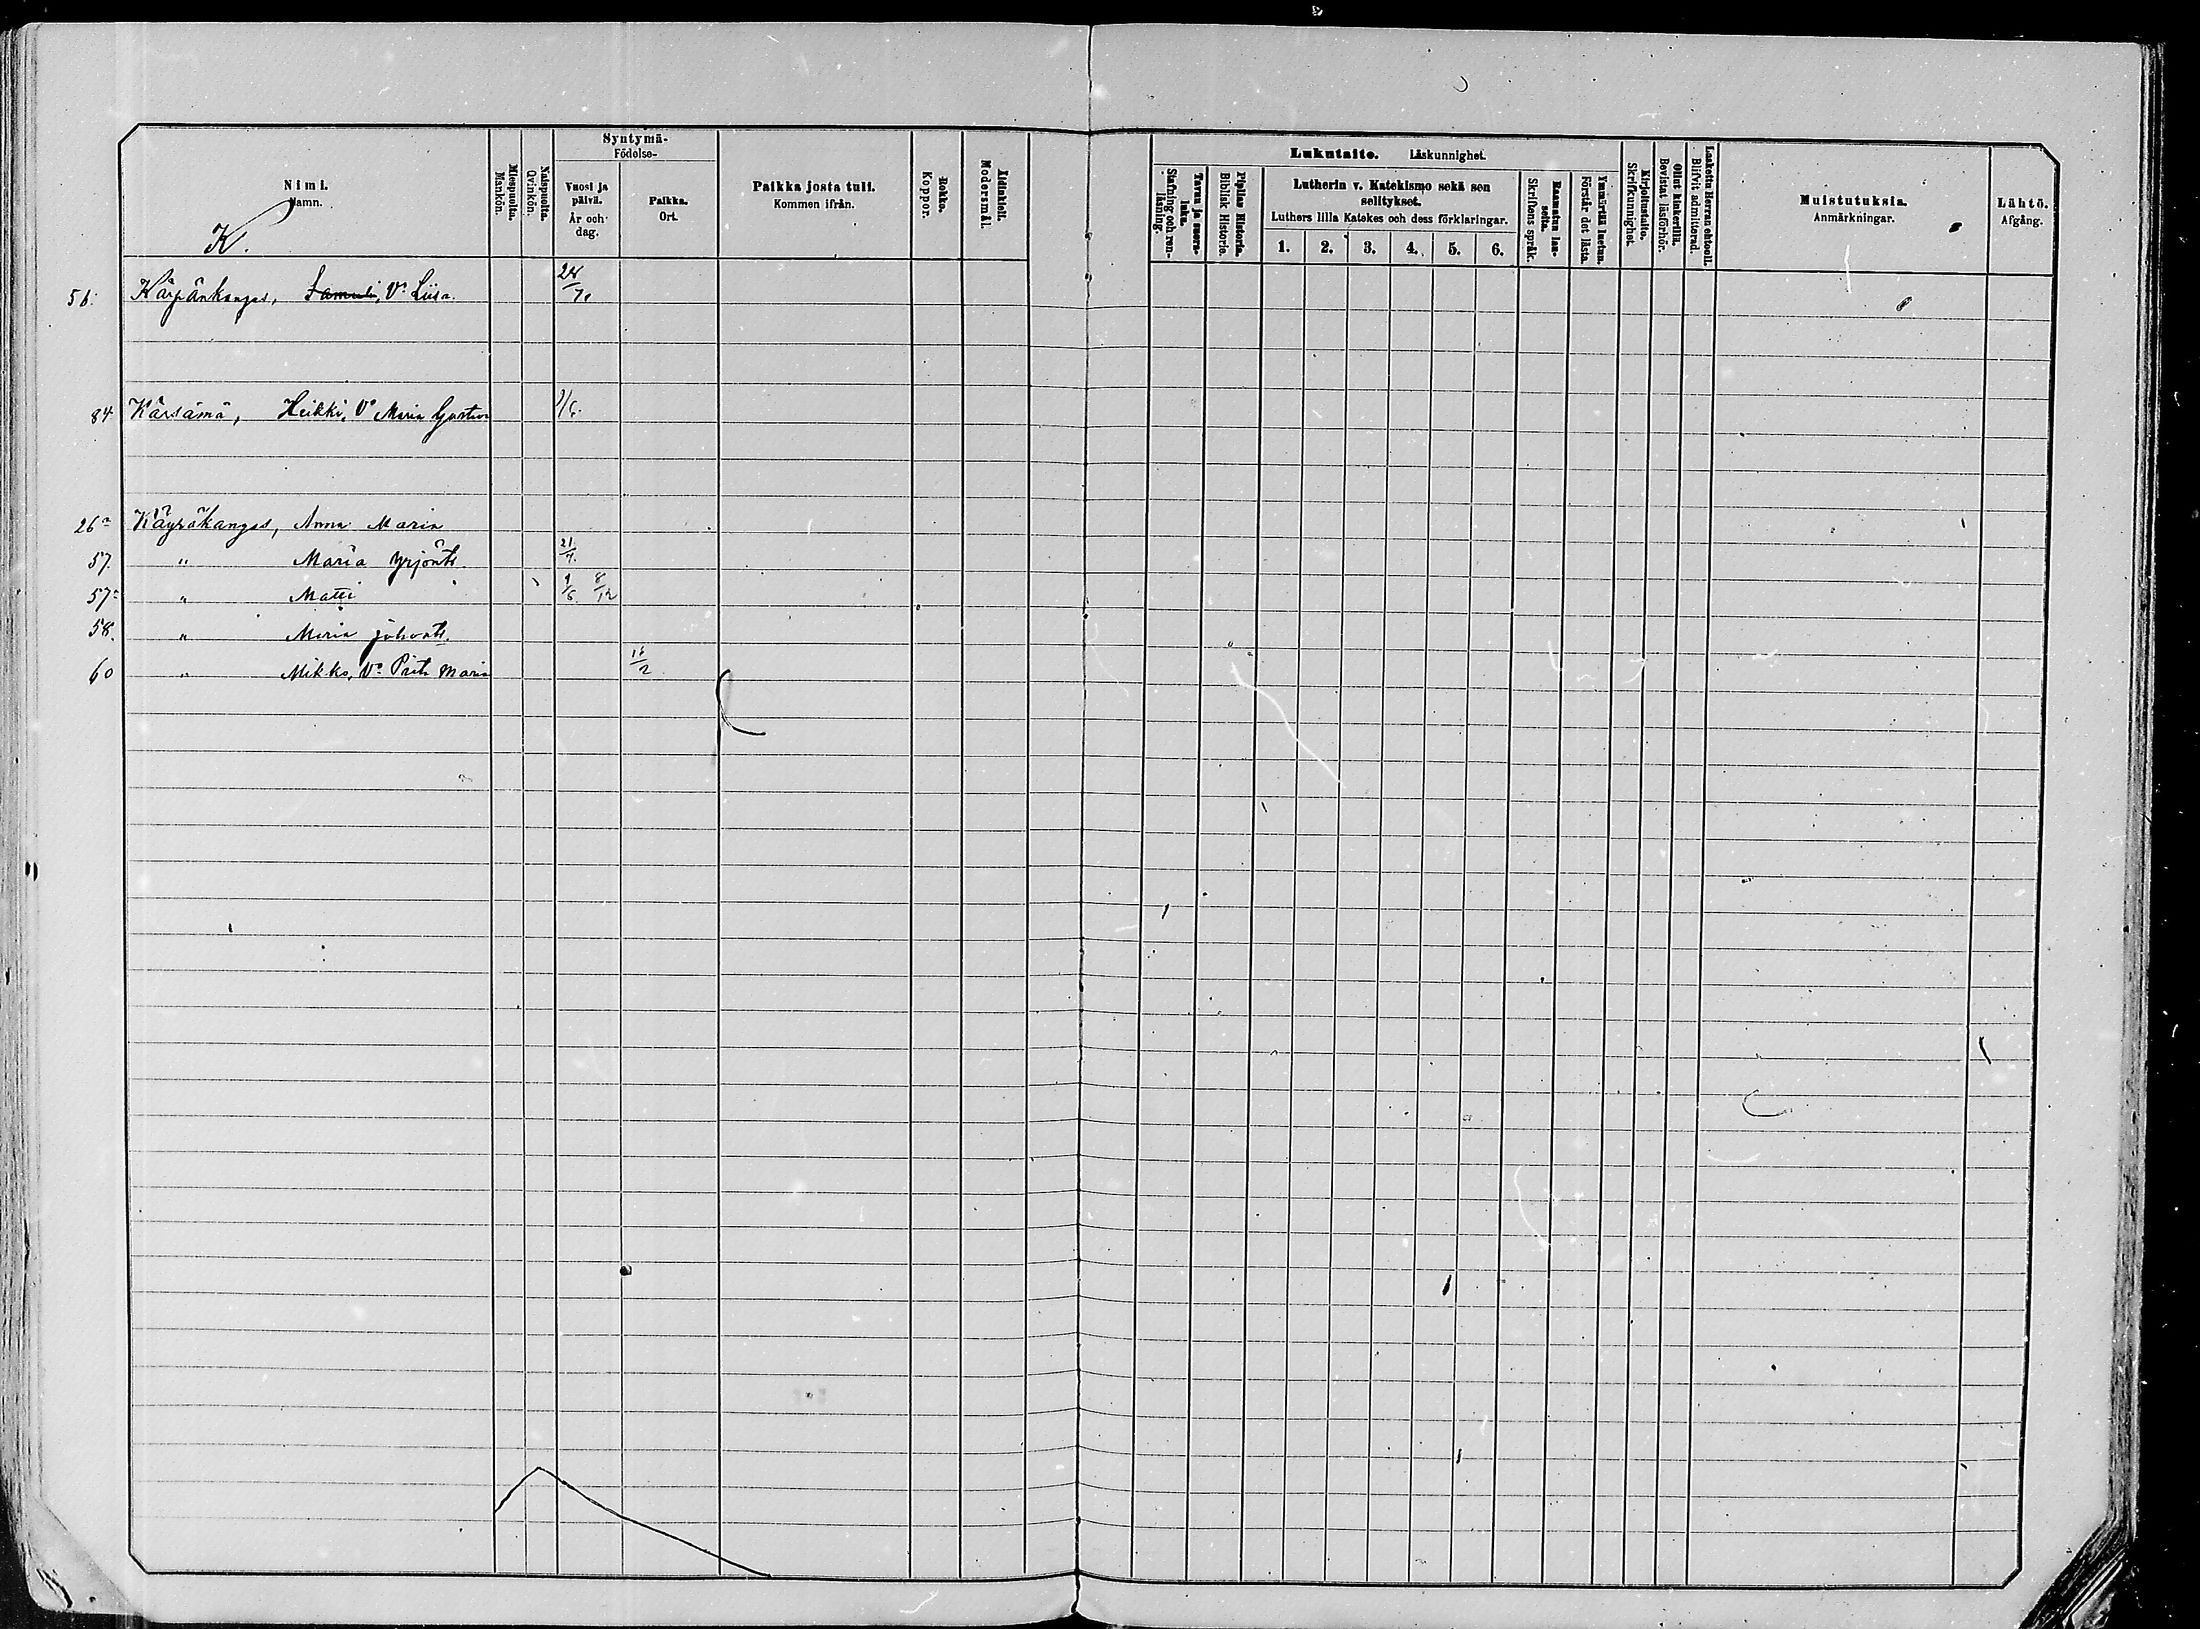 Nimi.
Namn.
K.
Miespuolia.
Mankön.
Naispuolia.
Qvinkön.
Syntymä-
Födelse-
Vuosi ja
päivä.
År och
dag.
Paikka.
Ort.
Paikka josta tuli.
Kommen ifrån.
Rokko.
Koppor.
Äidinkieli.
Modersmål.
Lukutaito. Läskunnighet.
Tavuu ja suora-
luku.
Stafning och ren-
läsning.
Piplian Historia.
Biblisk Historie.
Lutherin v. Katekismo sekä sen
selitykset.
Luthers lilla Katekes och dess förklaringar.
1. 2. 3. 4. 5. 6.
Raamatun lau-
seita.
Skriftens språk.
Ymmärtää luetun.
Förstår det lästa.
Kirjoitustaito.
Skrifkunnighet.
Ollut kinkerillä.
Bevistat läsförhör.
Laskettu Herran ehtoolI.
Blifvit admitterad.
Muistutuksia.
Anmärkningar.
Lähtö.
Afgång.
56. Kärpänkangas, Samuli, Vo Liisa. 24/7.
84 Kärsämä, Heikki, Vo Maria Gustava 9/6.
26a Käyräkangas, Anna Maria
57. " Maria Yrjönt. 21/4.
57a " Matti 9/6. 8/12
58. " Maria Juhont.
60 " Mikko, Vo Prita Maria 18/2.